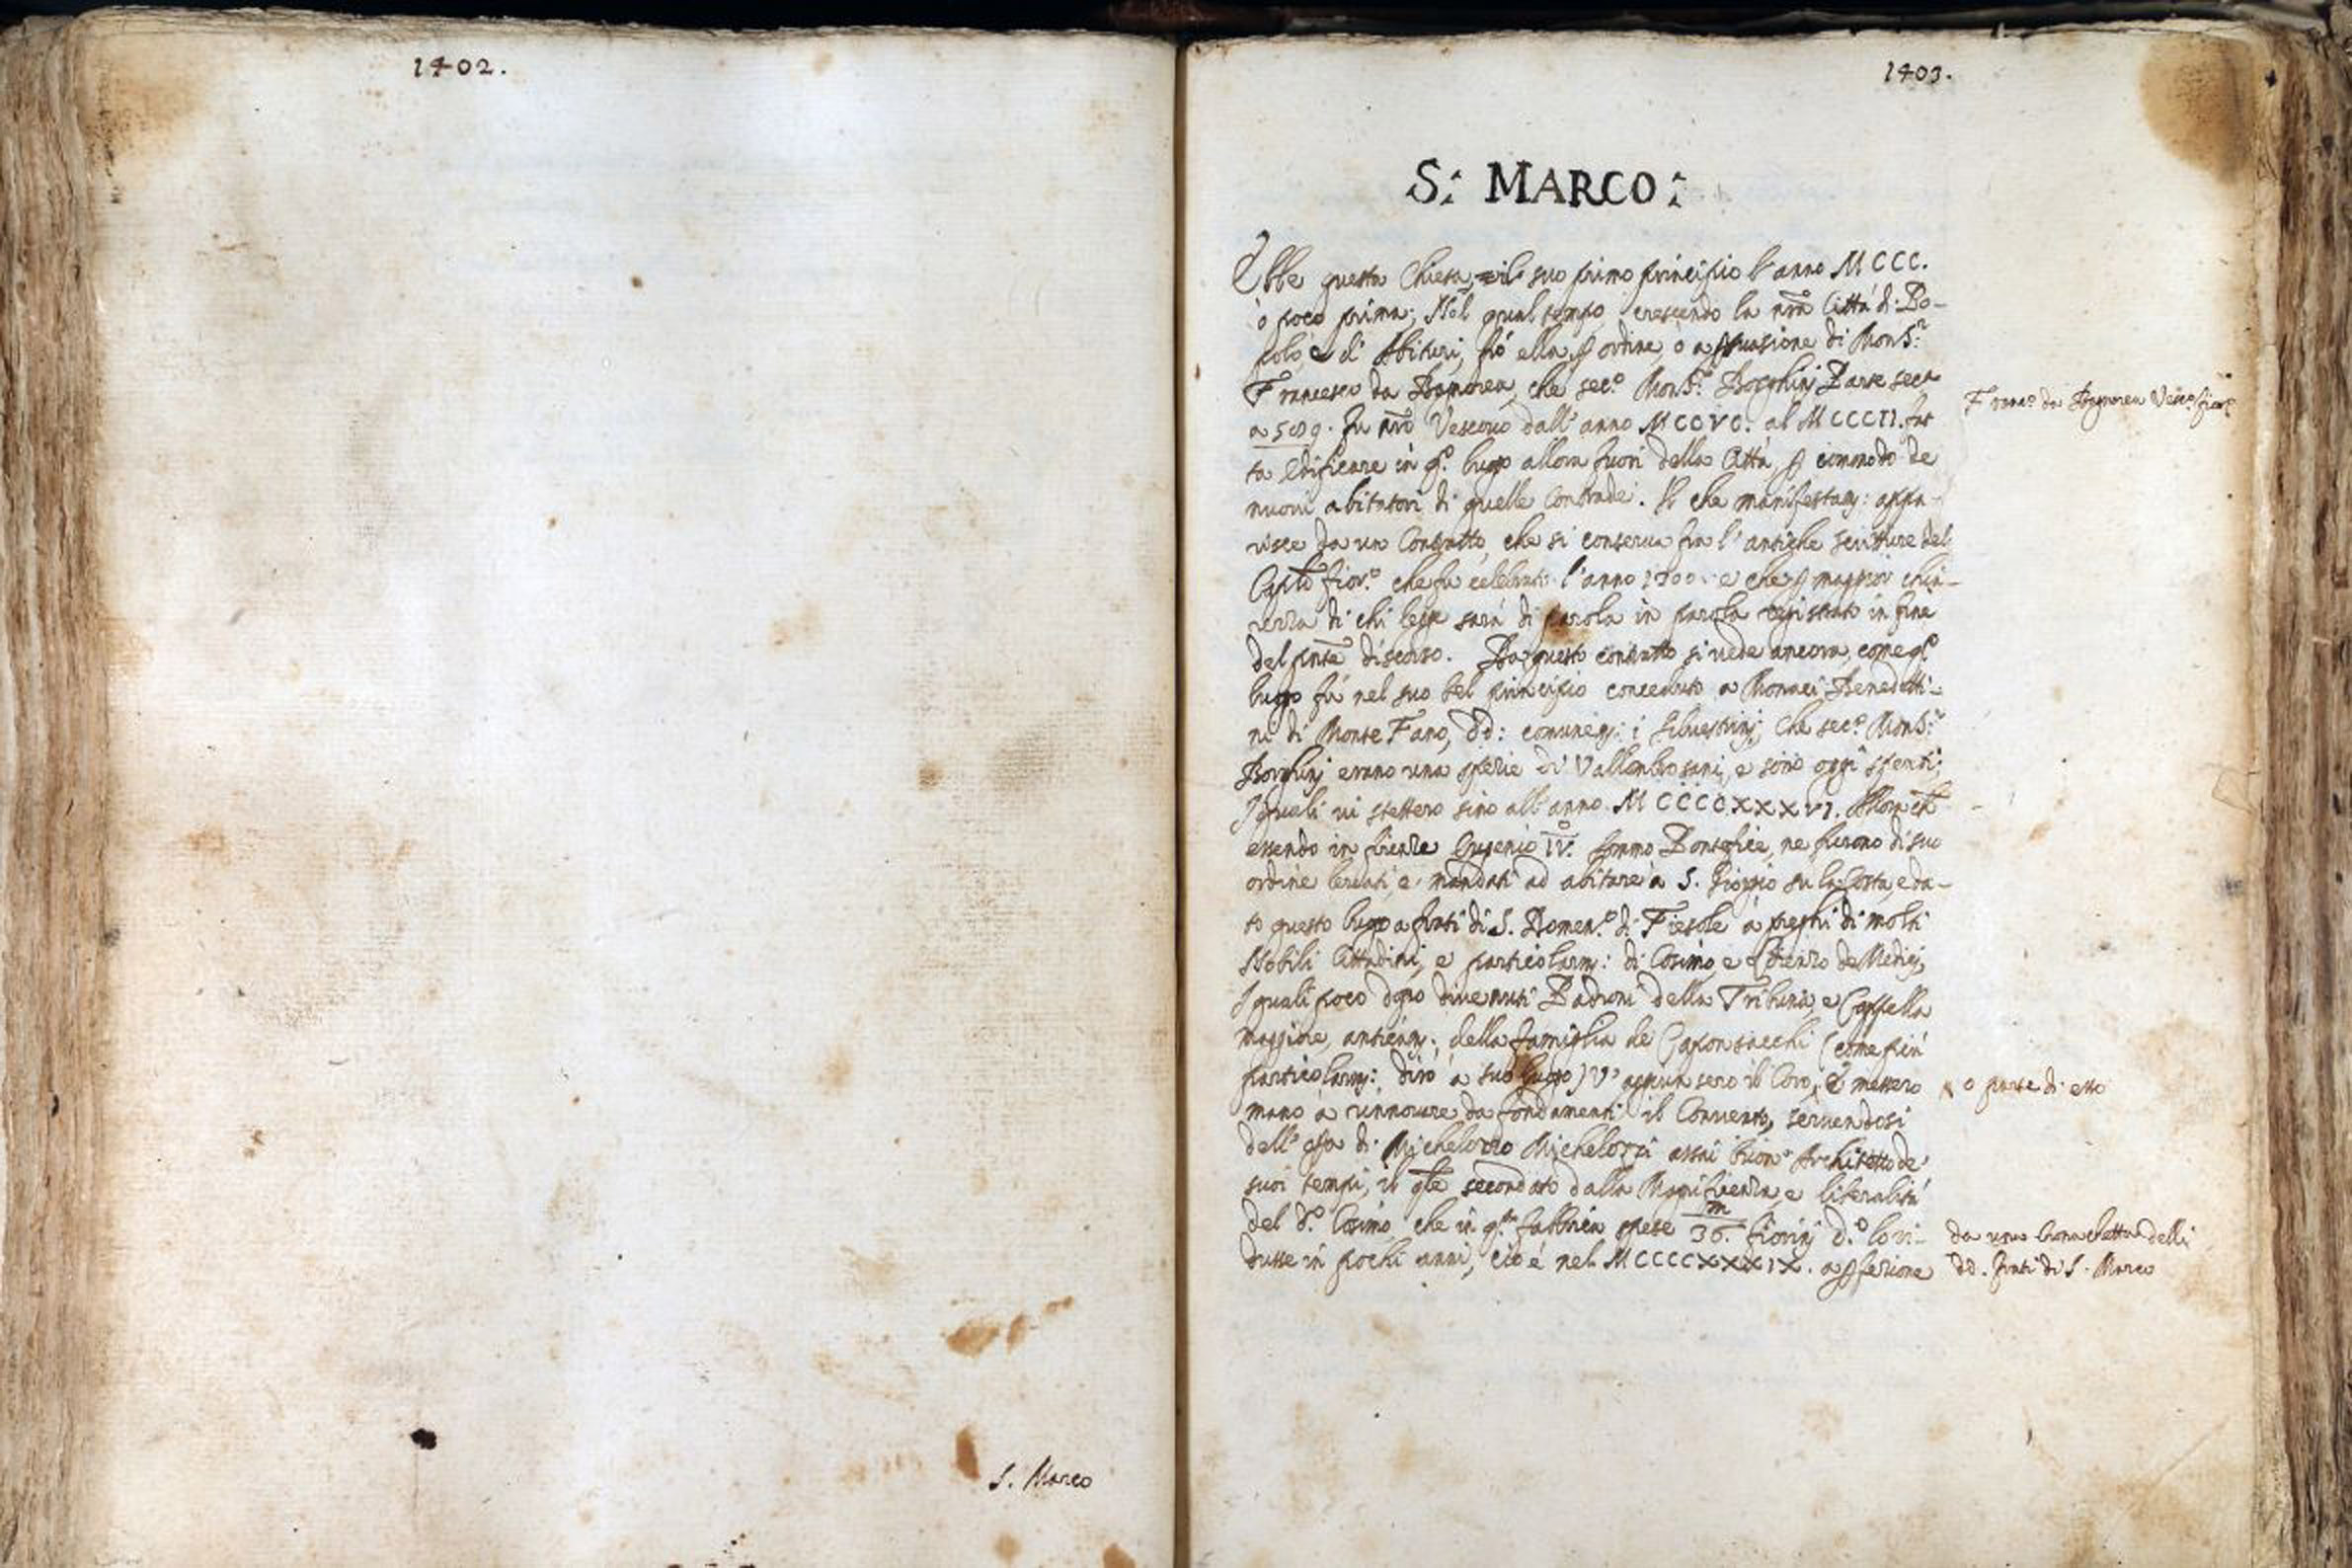 1402.
S. Marco
1403.
S: MARCO:
Ebbe questa Chiesa, il suo primo principio l'anno MCCC.
ò poco prima; Nel qual tempo crescendo la nrã Città di Po-
polo, e di Abituri, fù ella ꝑ ordine, o a ꝑsuasione di Mons.r
Francesco da Bagnorea, che sec.o Mons.r Borghinj Parte sec.a
a 509. fu nr̃o Vescovo dall'anno MCCVC. al MCCCII. fat
ta edificare in q.o luogo allora fuori della Città, ꝑ commodo de
nuovi abitatori di quelle Contrade. Il che manifestam: appa-
risce da un Contratto, che si conserva fra l'antiche scritture del
Capĩlo fior.o che fu celebrato l'anno 1300. e che ꝑ maggior chia-
rezza di chi legge sarà di parola in parola registrato in fine
del pñte discorso. Da questo contratto si vede ancora, come q.o
luogo fù nel suo bel principio conceduto a Monaci Benedetti-
ni di Monte Fano, dd: comunem: i Silvestrinj, Che sec.o Mons.r
Borghinj erano una spezie di Vallombrosani, e sono oggi spenti;
I quali vi stettero sino all'anno MCCCCXXXVI. Allora ch̃
essendo in firenze Eugenio IV. sommo Pontefice, ne furono di suo
ordine levati, e mandati ad abitare a S. Giorgio su la Costa, e da-
to questo luogo a frati di S. Domen.o di Fiesole a preghi di molti
Nobili Cittadini, e particolarm: di Cosimo, e Lorenzo de Medicj,
I quali poco dopo divenuti Padroni della Tribuna, e Cappella
maggiore, anticam: della famiglia de Caponsacchi (come più
particolarm: dirò a suo luogo) v'aggiunsero il Coro, e messero
o parte di esso
mano a rinnovare da fondamenti il Convento, servendosi
dell'opa di Michelozzo Michelozzi assai buon Architetto de'
suoi tempi, il qĩe secondato dalla Magnificenza, e liberalità
del d.o Cosimo, che in q.sta fabbrica spese 36.m fiorinj d.o lo ri-
dusse in pochi anni, cioè nel MCCCCXXXIX. a ꝑfezione
Franc.o da Bagnorea Vesc.o fior.o
da una Cronachetta delli
dd. frati di S. Marco